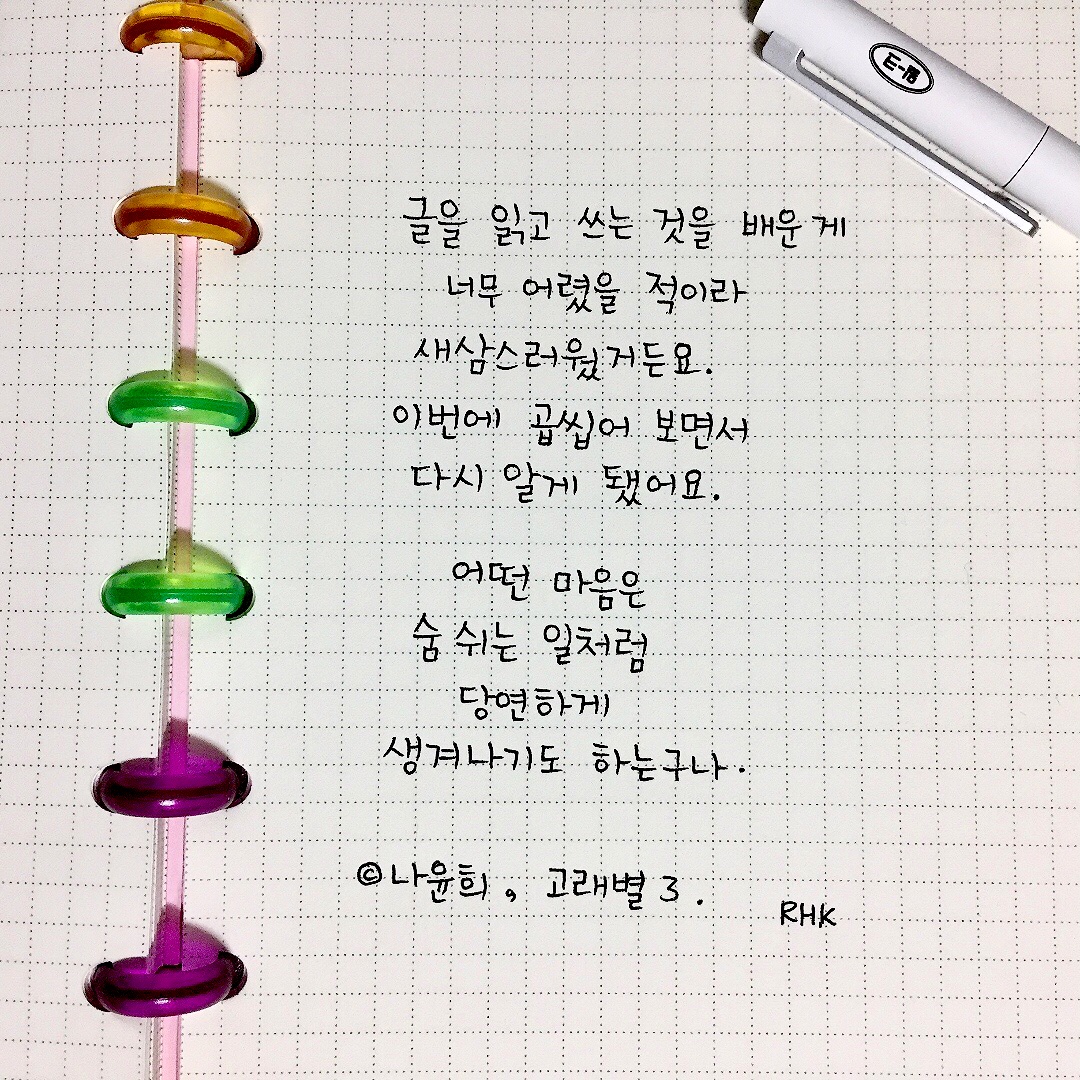 글을 읽고 쓰는 것을 배운 게
너무 어렸을 적이라
새삼스러웠거든요.
이번에 곱씹어 보면서
다시 알게 됐어요.
어떤 마음은
숨 쉬는 일처럼
당연하게
생겨나기도 하는구나.
©나윤희, 고래별 3.
RHK